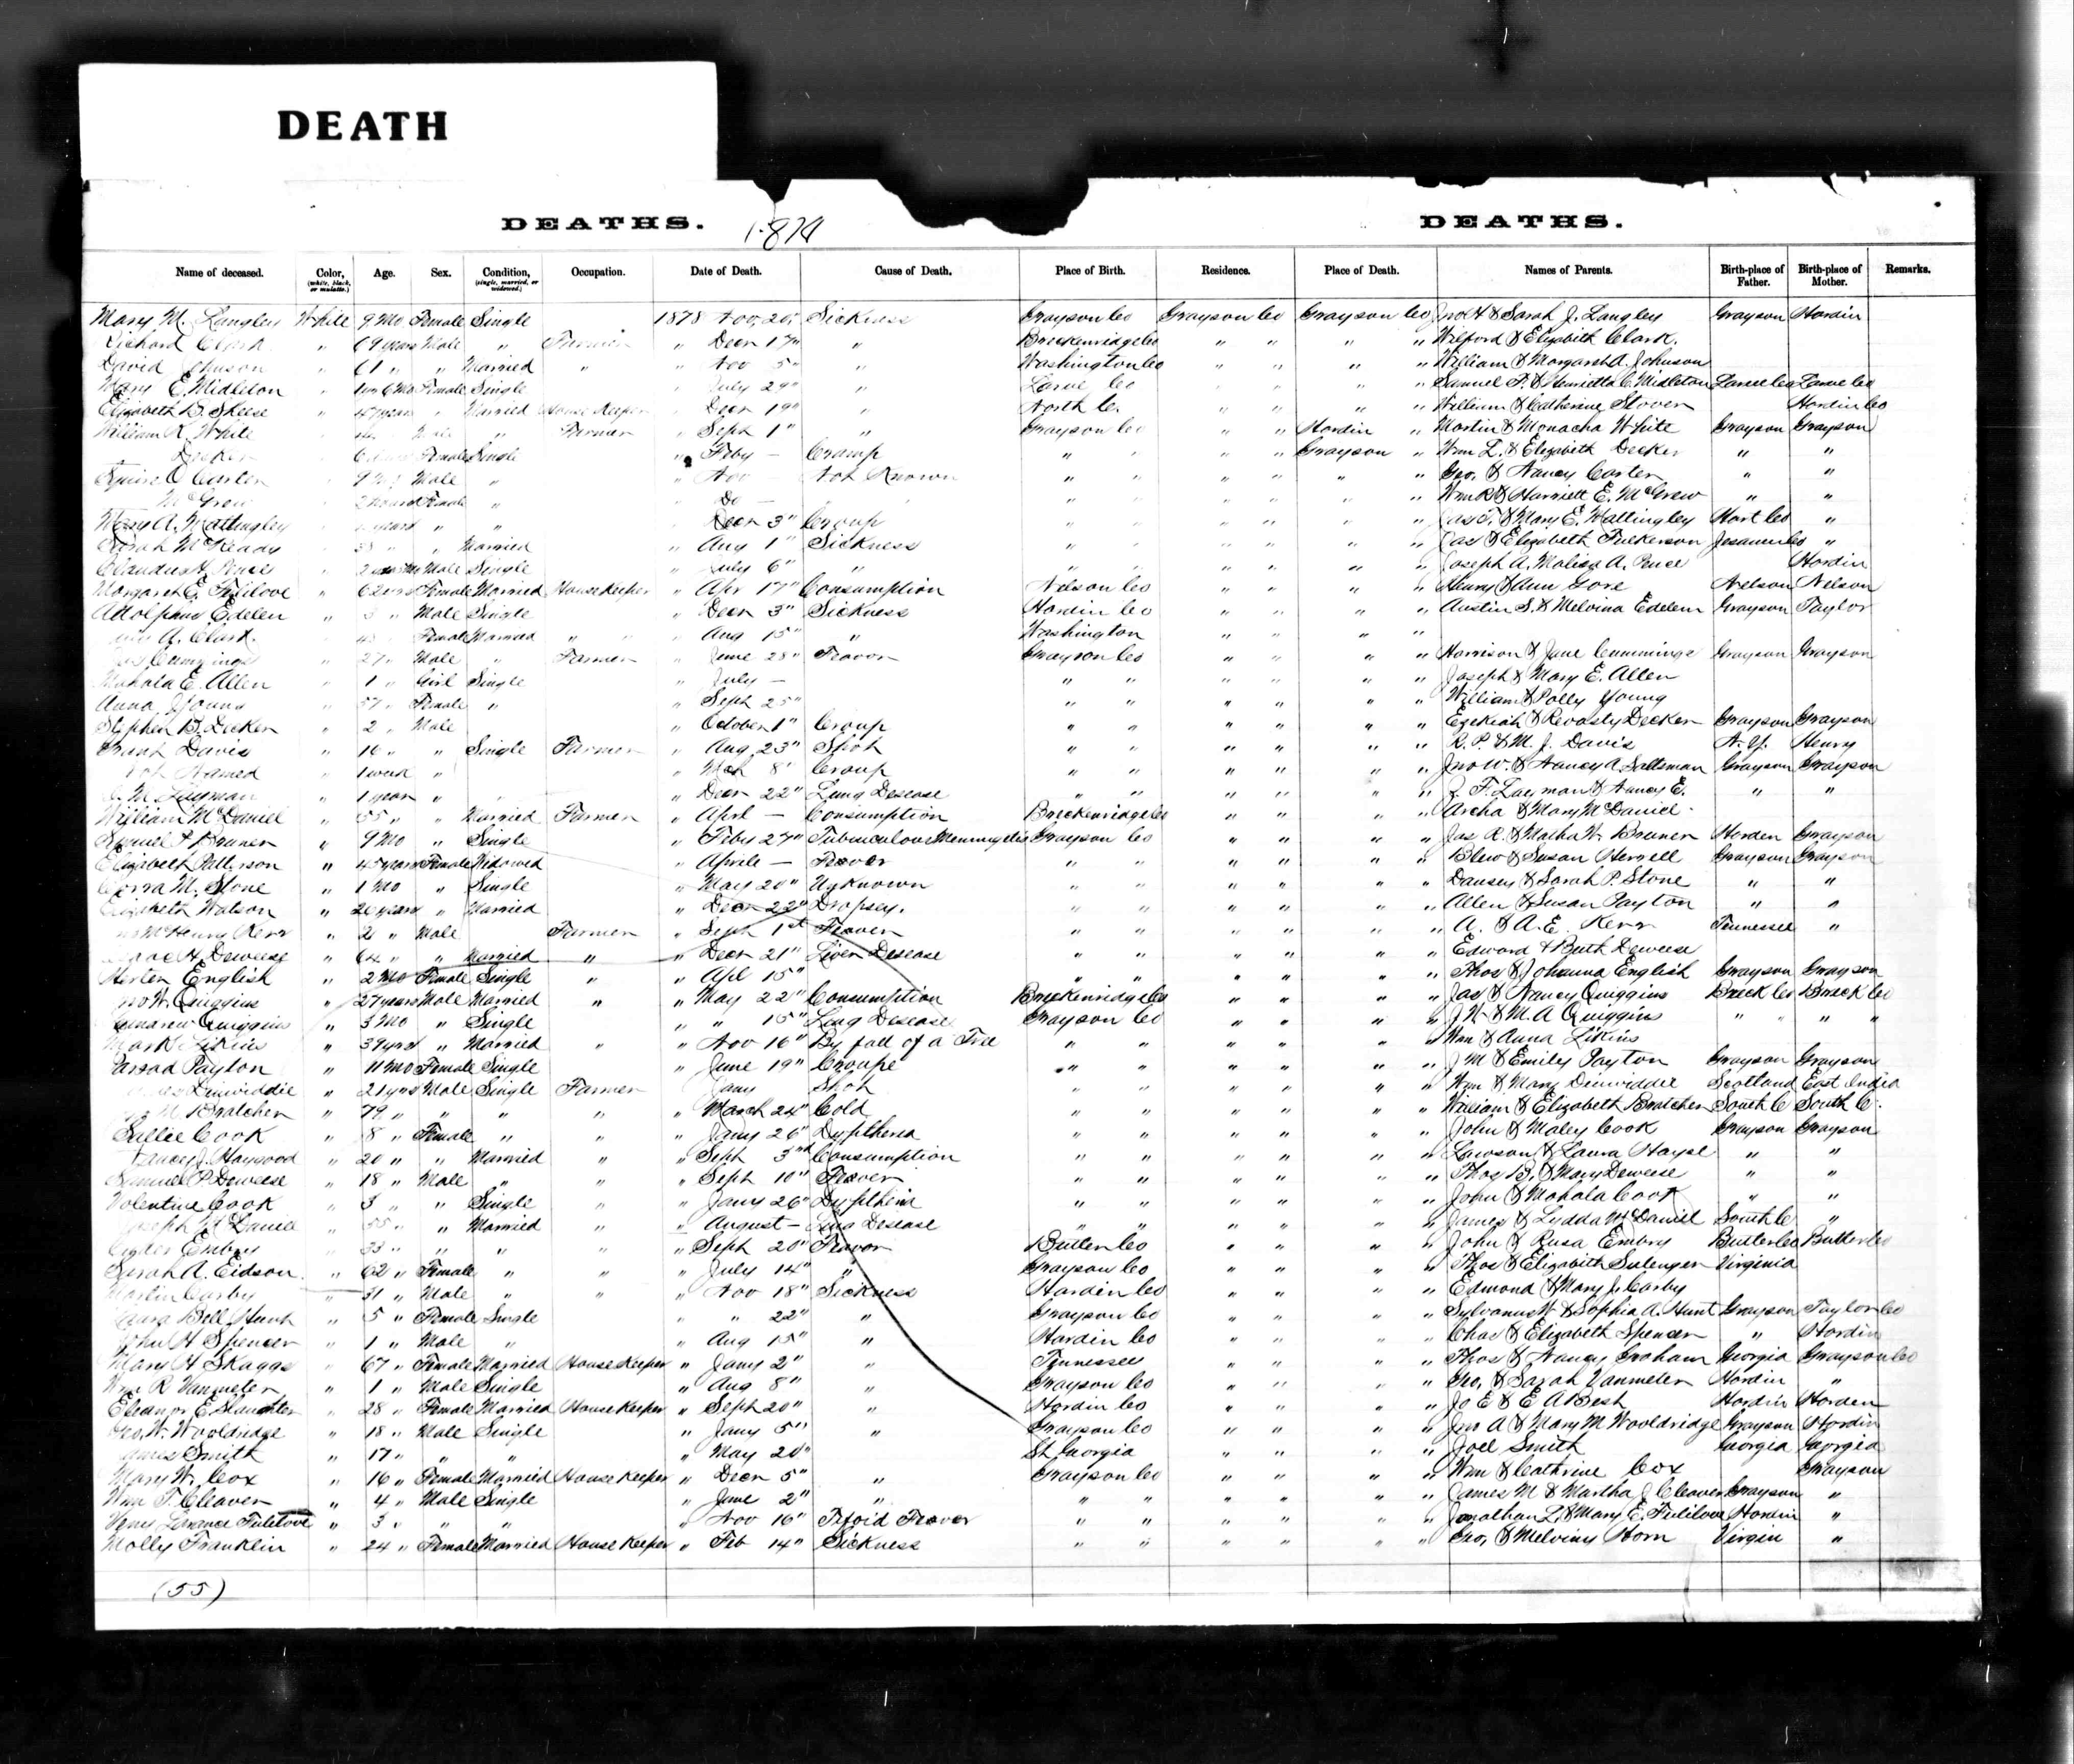 DEATH
DEATHS. 1874 DEATHS.
Name of deceased. Color, (white, black, or mulatto.) Age. Sex. Condition, (single, married, or widowed.) Occupation. Date of Death. Cause of Death. Place of Birth. Residence. Place of Death. Names of Parents. Birth-place of Father. Birth-place of Mother. Remarks.
Mary M. Langley White 9 Mo Female Single 1878 Nov, 20" Sickness Grayson Co Grayson Co Grayson Co Jno H & Sarah J. Langley Grayson Hardin
Richard Clark " 69 years Male " Farmer " Decr 17" " Breckenridge Co " " " " Wilford & Elizabeth Clark.
David Johnson " 61 " " Married " " Nov 5" " Washington Co " " " " William & Margaret A. Johnson
Mary E. Midleton " 1 yr 6 Mo Female Single " July 29" " Larue Co " " " " Samuel F. & Henrietta C. Midleton Larue Co Larue Co
Elizabeth B. Skese " 47 years " Married House Keeper " Decr 19" " North C. " " " " William & Catherine Stover Hardin Co
William R. White Male " Farmer " Sept 1" " Grayson Co " " Hardin " Martin & Monacha White Grayson Grayson
Decker Female Single " Feby — Cramp " " " " Grayson " Wm L. & Elizabeth Decker " "
Squire O Carter 9 Mo Male " " Nov — Not Known " " " " " " Geo, & Nancy Carter " "
McGrew 2 hours Female " Do — " " " " " " Wm R & Harriett E. McGrew " "
Mary A. Wattingley years " " Decr 3" Croup " " " " " " Jas F. & Mary E. Wattingley Hart Co "
Sarah McKeady 38 " " Married " Aug 1" Sickness " " " " " " Jas & Elizabeth Fulkerson "
Claudus H. Pence Male Single " July 6" " " " " " " " Joseph A. Malisa A. Pence Hardin
Margaret E. Fulilove " 62 years Female Married House Keeper " Apr 17" Consumption Nelson Co " " " " Henry & Ann Gore Nelson Nelson
Adolphus Edelen " 3 " Male Single " Decr 3" Sickness Hardin Co " " " " Austin S. & Melvina Edelen Grayson Taylor
A. Clark. " Female Married " " " Aug 15" " Washington " " " "
Cummings " 27 " Male " Farmer " June 28" Feavor Grayson Co " " " " Harrison & Jane Cummings Grayson Grayson
Mahala E. Allen " 1 " Girl Single " July — " " " " " " Joseph & Mary E. Allen
Anna Young " 57 " Female " " Sept 25" " " " " " " William & Polly Young
Stephen B. Decker " 2 " Male " October 1" Croup " " " " " " Ezekiah & Decker Grayson Grayson
Grant Davis " 16 " " Single Farmer " Aug 23" Shot " " " " " " R. P. & M. J. Davis N. Y. Henry
Not Named " 1 week " " Mch 8" Croup " " " " " " Jno W. & Nancy A Saltsman Grayson Grayson
M Layman " 1 year " " Decr 22" Lung Desease " " " " " " F. Layman & Nancy E. " "
William McDaniel " 55 " " Married Farmer " April — Consumption Breckenridge Co " " " " Archa & Mary McDaniel
Samuel F Bruner " 9 Mo " Single " Feby 27" Grayson Co " " " " Jas R. & Matha W. Bruner Harden Grayson
Elizabeth Patterson " 45 years Female Widowed " Aprile — Feaver " " " " " " Blew & Susan Herrell Grayson Grayson
Corra M. Stone " 1 Mo " Single " May 20" Unknown " " " " " " Dausey & Sarah P. Stone " "
Elizabeth Watson " 20 years " Married " Decr 22" Dropsey. " " " " " " Allen & Susan Payton " "
McHenry Kerr " 2 " Male Farmer " Sept 1st Feaver " " " " " " A. & A. E. Kerr Tennessee "
Isaac H. Deweese " 64 " " Married " " Decr 21" Liver Desease " " " " " " Edward & Ruth Deweese
Hester English " 2 Mo Female Single " " Apl 15" " " " " " " Thos & Johanna English Grayson Grayson
Jno W. Quiggins " 27 years Male Married " " May 22" Consumption Breckenridge Co " " " " Jas & Nancy Quiggins Breck Co Breck Co
Andrew Quiggins " 3 Mo " Single " " 15" Lung Desease Grayson Co " " " " J W & M. A Quiggins " "
Mark Likins " 39 yrs " Married " " Nov 16" By fall of a Tree " " " " " " Wm & Anna Likins
Payton " 11 Mo Female Single " June 19" Croupe " " " " " " J M & Emily Payton Grayson Grayson
Dinwiddie " 21 yrs Male Single Farmer " Jany Shot " " " " " " Wm & Mary Dinwiddie Scotland East India
M Bratcher " 79 " " " " " March 24" Cold " " " " " " William & Elizabeth Bratcher South C South C.
Sallie Cook " 8 " Female " " " Jany 26" Dyptheria " " " " " " John & Maley Cook Grayson Grayson
Nancy J. Haygood " 20 " " Married " " Sept 3nd Consumption " " " " " " Lawson & Laura Hayse " "
Samuel P. Deweese " 18 " Male " " " Sept 10" Feaver " " " " " " Thos B. & Mary Deweese " "
Valentine Cook " 3 " " Single " " Jany 26" Dyptheria " " " " " " John & Mahala Cook " "
Joseph McDaniel " 55 " " Married " " August — Lung Desease " " " " " " James & Lydda McDaniel South C "
Embry " 33 " " " " " Sept 20" Feavor Butler Co " " " " John & Rusa Embry Butler Co Butler Co
Sarah A. Eidson " 62 " Female " " " July 14" " Grayson Co " " " " Thos & Elizabeth Sulenger Virginia
Martin Carby " 31 " Male " " " Nov 18" Sickness Hardin Co " " " " Edmond & Mary J. Carby
Bell Hunt " 5 " Female Single " " 22" " Grayson Co " " " " Sylvanus W & Sophia A. Hunt Grayson Taylor Co
John H Spencer " 1 " Male " " Aug 15" " Hardin Co " " " " Chas & Elizabeth Spencer " Hardin
Mary H Skaggs " 67 " Female Married House Keeper " Jany 2" " Tennessee " " " " Thos & Nancy Graham Georgia Grayson Co
Wm R Vanmeter " 1 " Male Single " Aug 8" " Grayson Co " " " " Geo, & Sarah Vanmeter Hardin "
Eleanor E. Slaughter " 28 " Female Married House Keeper " Sept 20" " Hardin Co " " " " Jo E & E A Best Hardin Harden
Geo, W. Wooldridge " 18 " Male Single " Jany 5" " Grayson Co " " " " Jno A & Mary M Wooldridge Grayson Hardin
James Smith " 17 " " " " May 20" St Georgia " " " " Joel Smith Georgia Georgia
Mary W. Cox " 16 " Female Married House Keeper " Decr 5" " Grayson Co " " " " Wm & Cathrine Cox Grayson
Wm T. Cleaver " 4 " Male Single " June 2" " " " " " " " James M & Martha J Cleaver Grayson "
Fulilove " 3 " " " " Nov 16" Tifoid Feavor " " " " " " Jonathan L. & Mary E. Fulilove Hardin "
Molly Franklin " 24 " Female Married House Keeper " Feb 14" Sickness " " " " " " Geo, & Melviny Horn Virgin "
(55)